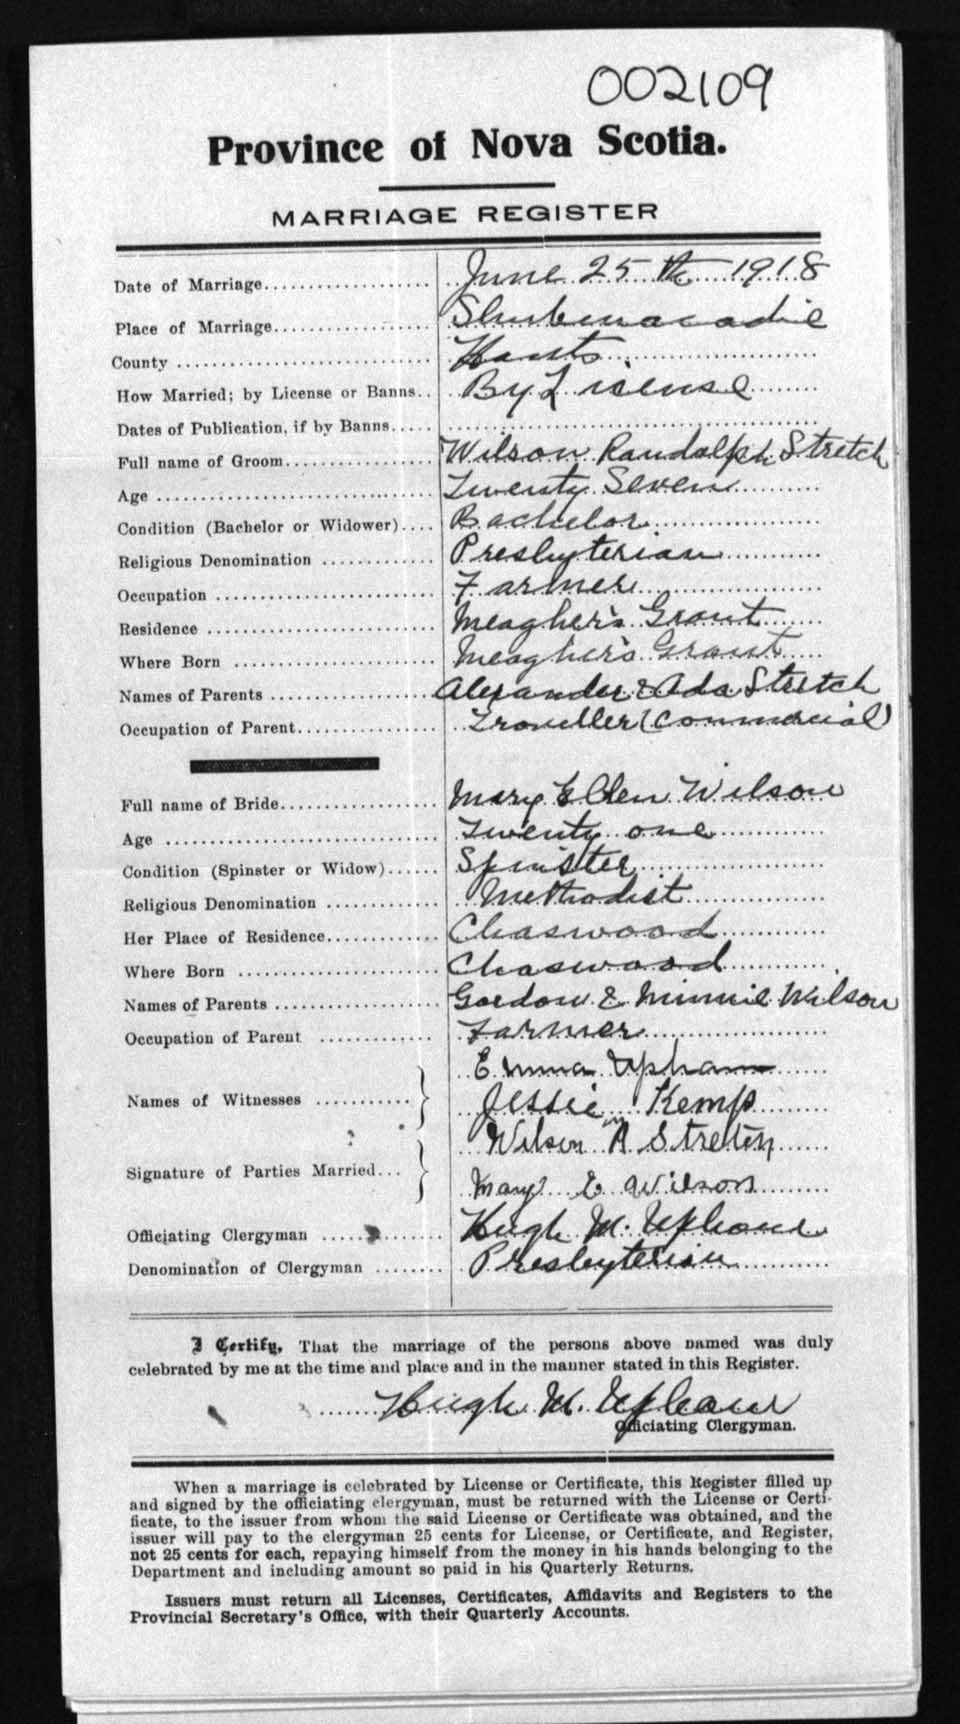 002109
Province of Nova Scotia.
MARRIAGE REGISTER
Date of Marriage June 25th 1918
Place of Marriage Shubenacadie
County Hants
How Married; by License or Banns By License
Dates of Publication, if by Banns
Full name of Groom Wilson Randolph Stretch
Age Twenty Seven
Condition (Bachelor or Widower) Bachelor
Religious Denomination Presbyterian
Occupation Farmer
Residence Meagher's Grant
Where Born Meagher's Grant
Names of Parents Alexander & Ada Stretch
Occupation of Parent Traveller (Commercial)
Full name of Bride Mary Ellen Wilson
Age Twenty one
Condition (Spinster or Widow) Spinster
Religious Denomination Methodist
Her Place of Residence Chaswood
Where Born Chaswood
Names of Parents Gordon & Minnie Wilson
Occupation of Parent Farmer
Emma Upham
Names of Witnesses
Jessie Kemp
Wilson R Stretch
Signature of Parties Married
Mary E Wilson
Officiating Clergyman Hugh M. Upham
Denomination of Clergyman Presbyterian
I Certify, That the marriage of the persons above named was duly
celebrated by me at the time and place and in the manner stated in this Register.
Hugh M. Upham
Officiating Clergyman.
When a marriage is celebrated by License or Certificate, this Register filled up
and signed by the officiating clergyman, must be returned with the License or Certi-
ficate, to the issuer from whom the said License or Certificate was obtained, and the
issuer will pay to the clergyman 25 cents for License, or Certificate, and Register,
not 25 cents for each, repaying himself from the money in his hands belonging to the
Department and including amount so paid in his Quarterly Returns.
Issuers must return all Licenses, Certificates, Affidavits and Registers to the
Provincial Secretary's Office, with their Quarterly Accounts.